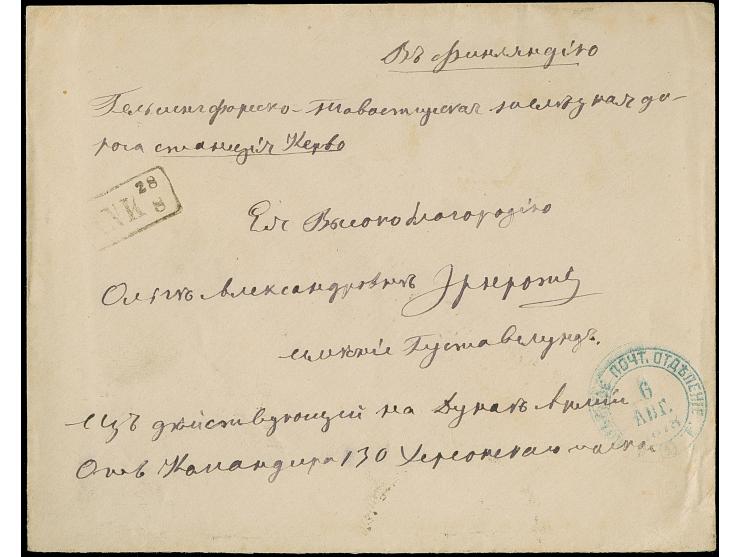 Въ Финляндію
Гельсингфорско-Тавастгуская желѣзная до-
рога станція Керво
28
8
Ея Высокоблагородію
Ольгѣ Александровнѣ
имѣніе Густавелундъ.
Изъ дѣйствующий на Дунаѣ Арміи
Отъ Командира 130 Херсонскаго полка.
ПОЧТ. ОТДѢЛЕНІЕ
6
АВГ.